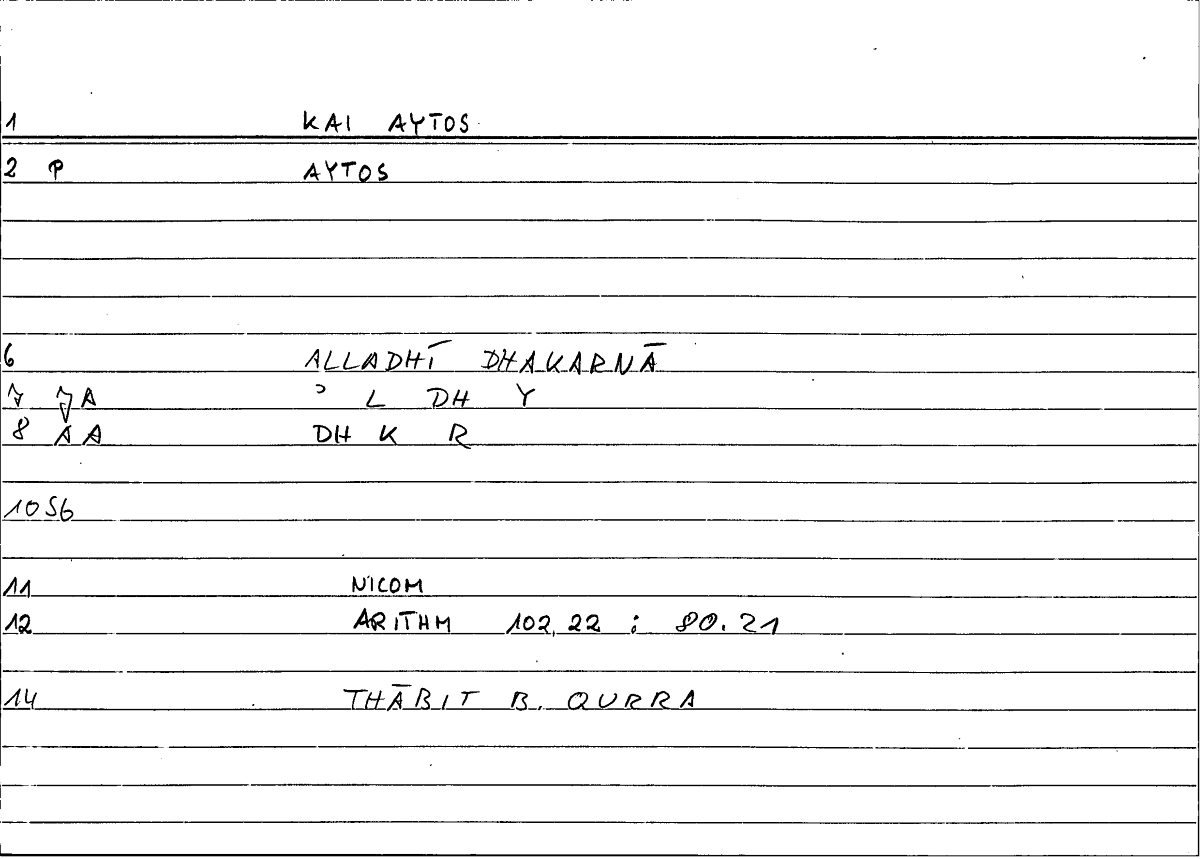 1 KAI AYTOS
2 P AYTOS
6 ALLADHĪ DHAKARNĀ
7 JA ʾ L DH Y
8 AA DH K R
10 56
11 NICOM
12 ARITHM 102,22 : 80.21
14 THĀBIT B. QURRA